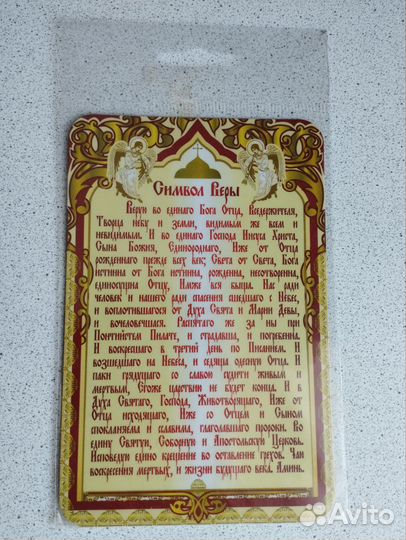 Символ Веры
Верую во единаго Бога Отца, Вседержителя,
Творца небу и земли, видимым же всем и
невидимым. И во единаго Господа Иисуса Христа,
Сына Божия, Единороднаго, Иже от Отца
рожденнаго прежде всех век; Света от Света, Бога
истинна от Бога истинна, рожденна, несотворенна,
единосущна Отцу, Имже вся быша. Нас ради
человек и нашего ради спасения сшедшаго с Небес,
и воплотившагося от Духа Свята и Марии Девы,
и вочеловечшася. Распятаго же за ны при
Понтийстем Пилате, и страдавша, и погребенна.
И воскресшаго в третий день по Писанием. И
возшедшаго на Небеса, и седяща одесную Отца. И
паки грядущаго со славою судити живым и
мертвым, Егоже царствию не будет конца. И в
Духа Святаго, Господа, Животворящаго, Иже от
Отца исходящаго, Иже со Отцем и Сыном
спокланяема и славима, глаголавшаго пророки. Во
едину Святую, Соборную и Апостольскую Церковь.
Исповедую едино крещение во оставление грехов. Чаю
воскресения мертвых, и жизни будущаго века. Аминь.
Avito